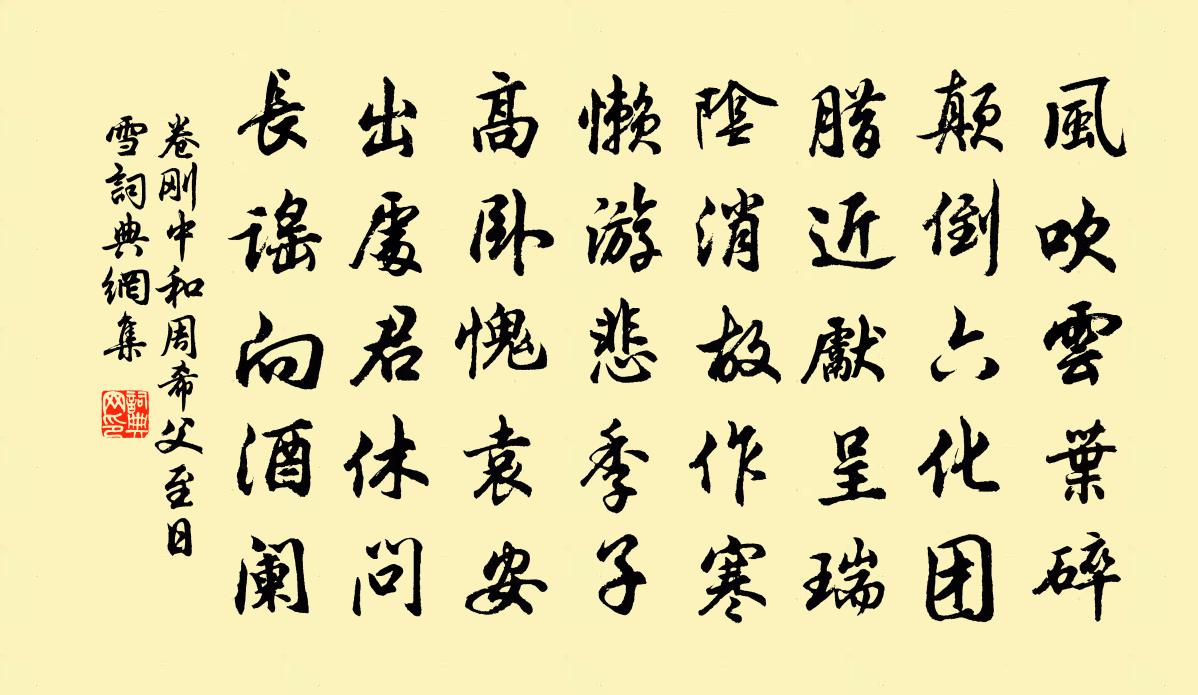 風吹雲葉碎
顛倒六化团
腊近獻呈瑞
陰消故作寒
懶游悲季子
高卧愧袁安
出處君休问
長謠向酒阑
卷刚中和周希父至日
雪詞典網集
詞典
网印